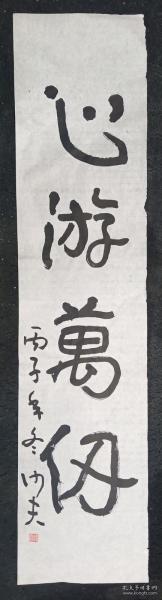 心游萬仞
丙子年冬沙夫
孔夫子旧书网